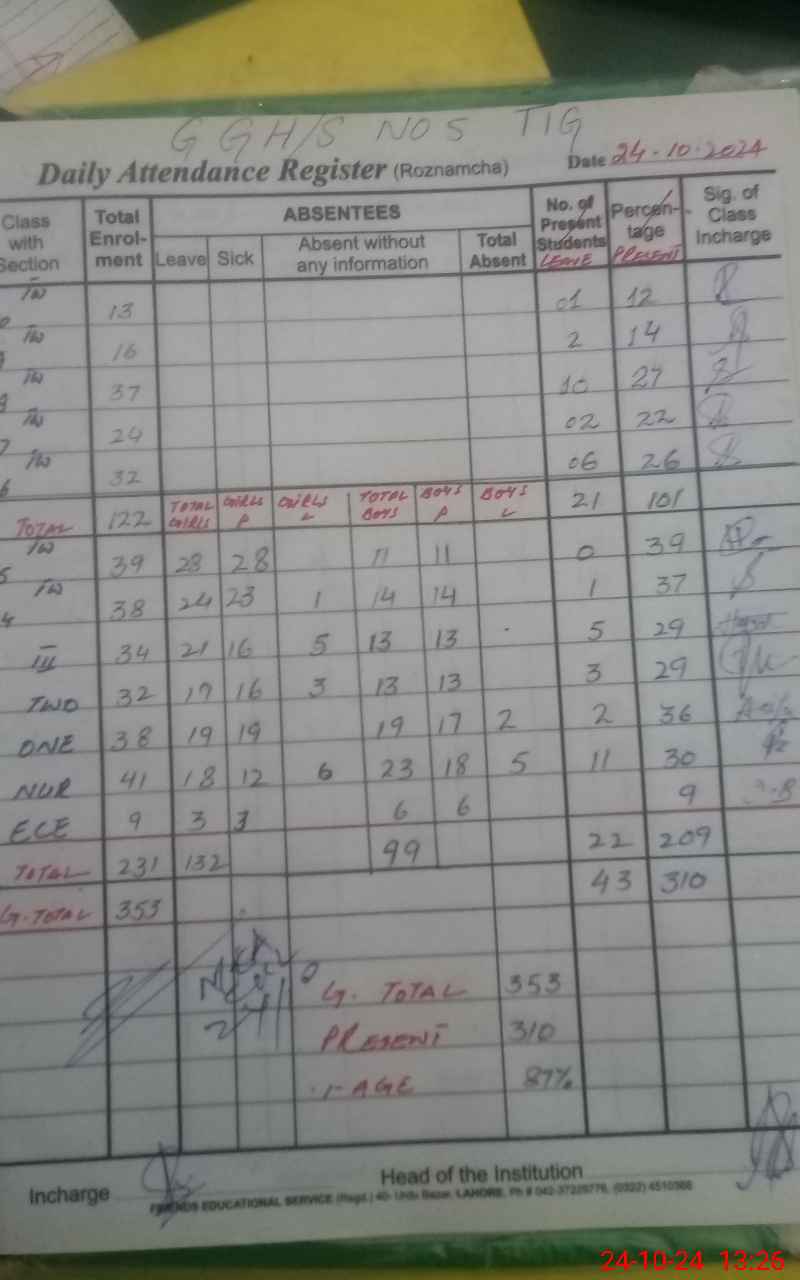 GGH/S NO 5 TIG
Daily Attendance Register (Roznamcha) Date 24-10-2024
Class with Section Total Enrol-ment ABSENTEES Leave Sick Absent without any information Total Absent No. of Present Students LEAVE Percen-tage PRESENT Sig. of Class Incharge
13 01 12
16 2 14
37 10 27
7 24 02 22
6 32 06 26
TOTAL 122 TOTAL GIRLS GIRLS P GIRLS L TOTAL BOYS BOYS P BOYS L 21 101
5 39 28 28 11 11 0 39
4 38 24 23 1 14 14 1 37
III 34 21 16 5 13 13 - 5 29
TWO 32 19 16 3 13 13 3 29
ONE 38 19 19 19 17 2 2 36
NUR 41 18 12 6 23 18 5 11 30
ECE 9 3 3 6 6 9
TOTAL 231 132 99 22 209
G.TOTAL 353 43 310
G. TOTAL 353
PRESENT 310
AGE 87%
Incharge Head of the Institution
FRIENDS EDUCATIONAL SERVICE (Regd.) 40- Urdu Bazar, LAHORE, Ph # 042-37229776, (0322) 4510366
24-10-24 13:26